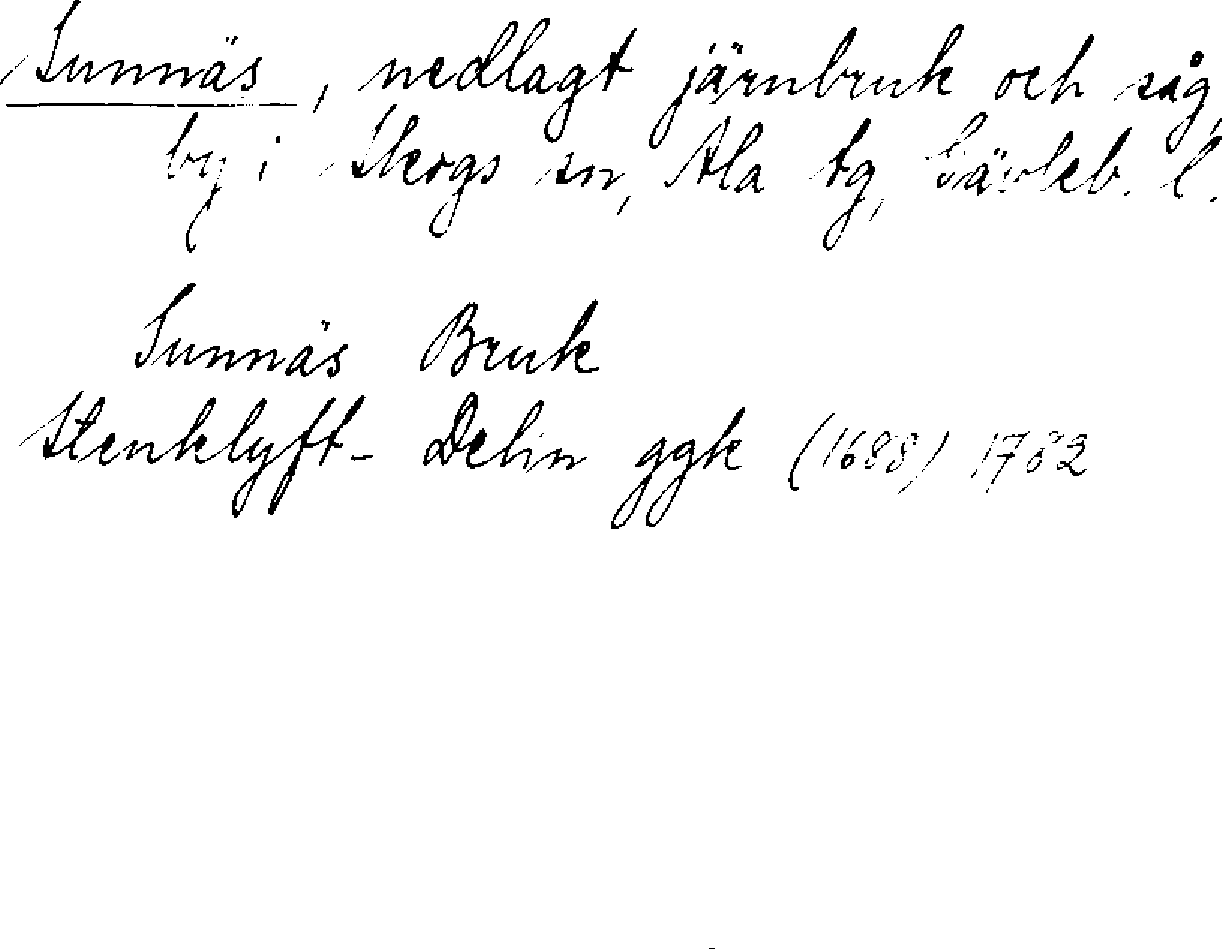 Sunnäs, nedlagt järnbruk och såg,
by i Skogs sn, Ala tg, Gävleb. l.
Sunnäs Bruk
Stenklyft- Delin ggk (1688) 1762